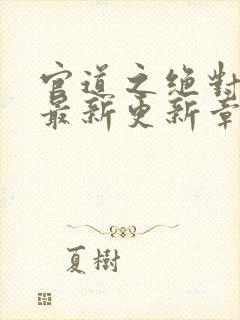 官道之绝對
最新更新章
夏樹